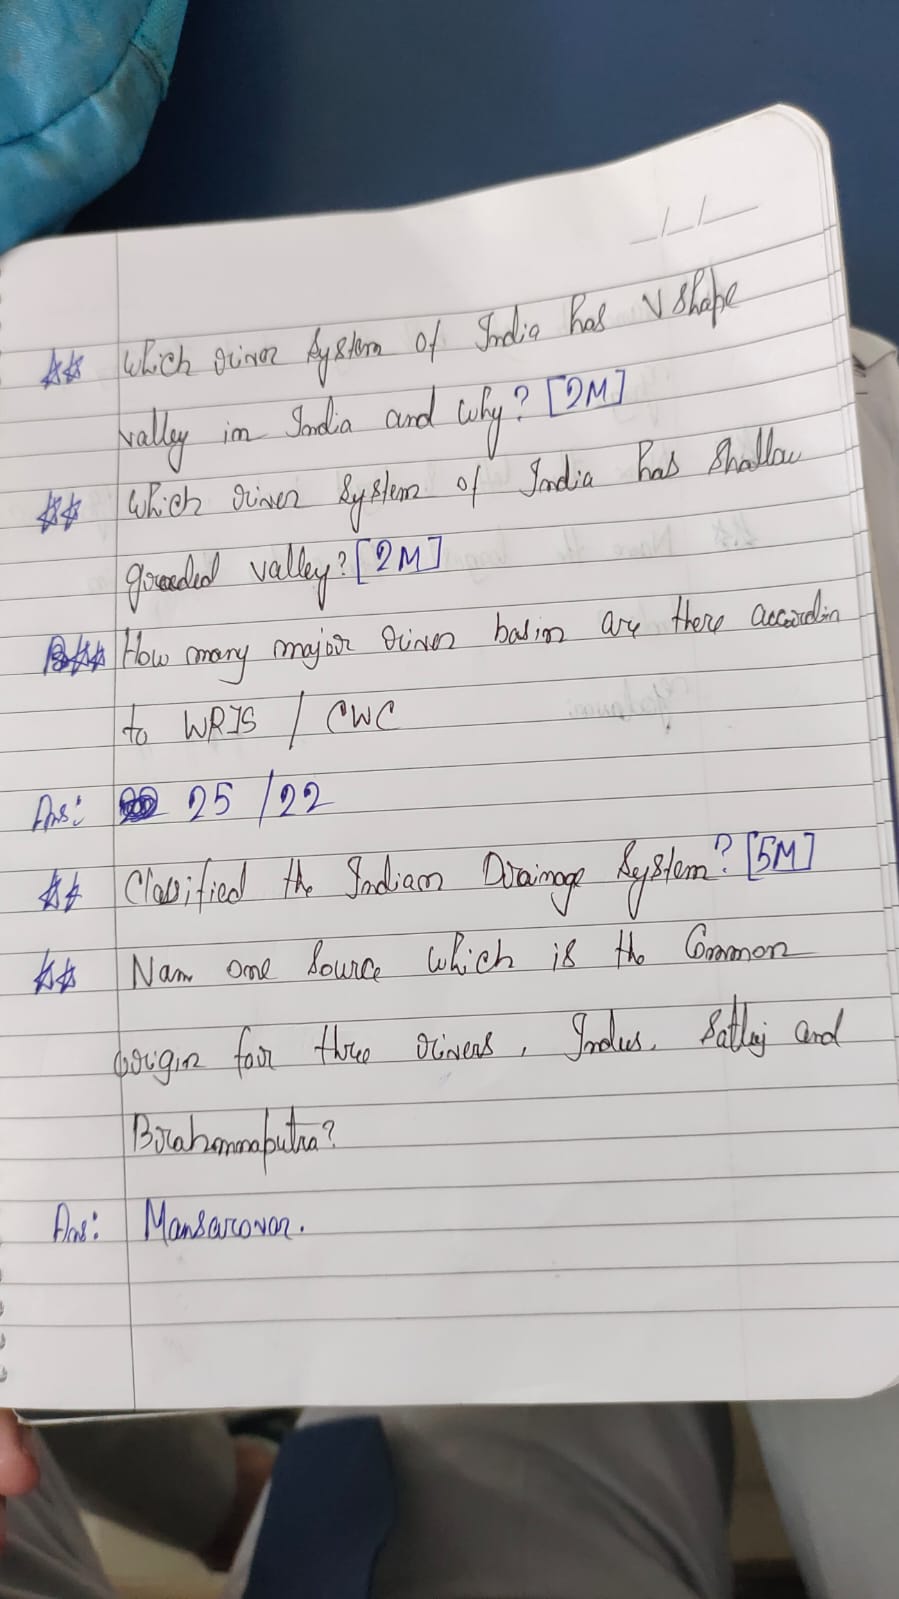 Which river system of India has V shape
valley in India and why? [2M]
Which river system of India has Shallow
graded valley? [2M]
How many major river basin are there accordin
to WRIS / CWC
Ans: 25 /22
Classified the Indian Drainage system? [5M]
Nam one source which is the Common
origin for three rivers, Indus, Satluj and
Brahammaputra?
Ans: Mansarovar.